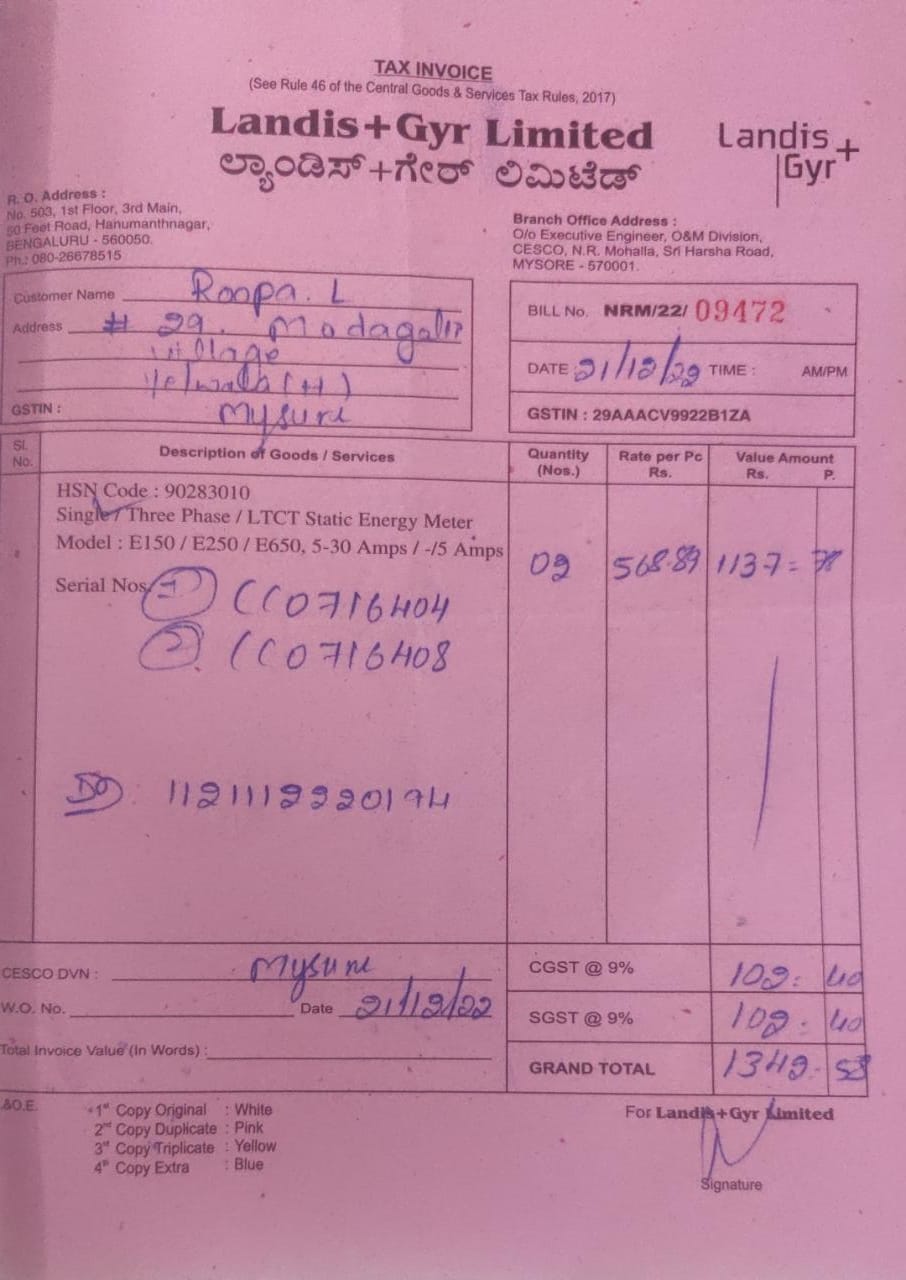 TAX INVOICE
(See Rule 46 of the Central Goods & Services Tax Rules, 2017)
Landis+Gyr Limited
ಲ್ಯಾಂಡಿಸ್+ಗೇರ್ ಲಿಮಿಟೆಡ್
Landis
Gyr+
R. O. Address :
No. 503, 1st Floor, 3rd Main,
50 Feet Road, Hanumanthnagar,
BENGALURU - 560050.
Ph.: 080-26678515
Branch Office Address :
O/o Executive Engineer, O&M Division,
CESCO, N.R. Mohalla, Sri Harsha Road,
MYSORE - 570001.
Customer Name Roopa. L
Address # 29. Madagalli
Village
Yelwala (H)
GSTIN : Mysure
BILL No. NRM/22/ 09472
DATE 21/12/22 TIME : AM/PM
GSTIN : 29AAACV9922B1ZA
Sl. No. Description of Goods / Services Quantity (Nos.) Rate per Pc Rs. Value Amount Rs. P.
HSN Code : 90283010
Single / Three Phase / LTCT Static Energy Meter
Model : E150 / E250 / E650, 5-30 Amps / -/5 Amps 02 568.89 1137 = 78
Serial Nos. 1 CC0716404
2. CC0716408
112111222019 4
CESCO DVN : Mysure
W.O. No. Date 21/12/22
Total Invoice Value (In Words) :
CGST @ 9% 102. 40
SGST @ 9% 102. 40
GRAND TOTAL 1342. 58
&O.E.
1st Copy Original : White
2nd Copy Duplicate : Pink
3rd Copy Triplicate : Yellow
4th Copy Extra : Blue
For Landis+Gyr Limited
Signature